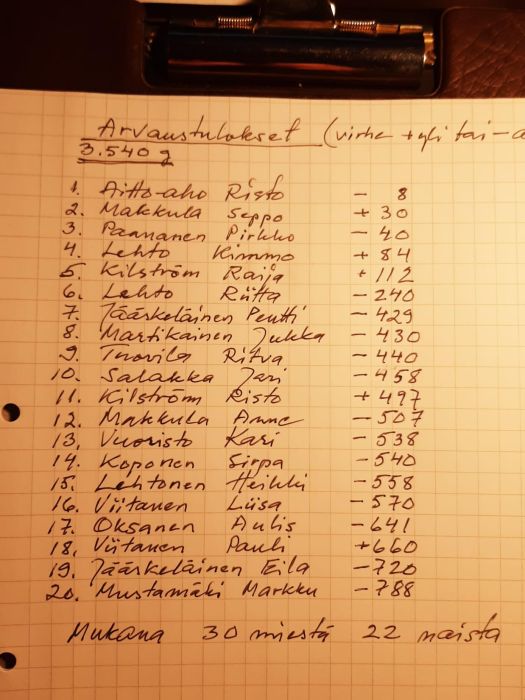 Arvaustulokset (virhe + yli tai -a
3.540 g
1. Aitto-aho Risto - 8
2. Makkula Seppo + 30
3. Paananen Pirkko - 40
4. Lehto Kimmo + 84
5. Kilström Raija + 112
6. Lehto Riitta - 240
7. Jääskeläinen Pentti - 429
8. Martikainen Jukka - 430
9. Tuovila Ritva - 440
10. Salakka Jari - 458
11. Kilström Risto + 497
12. Makkula Anne - 507
13. Vuoristo Kari - 538
14. Koponen Sirpa - 540
15. Lehtonen Heikki - 558
16. Viitanen Liisa - 570
17. Oksanen Aulis - 641
18. Viitanen Pauli +660
19. Jääskeläinen Eila -720
20. Mustamäki Markku - 788
Mukana 30 miestä 22 naista